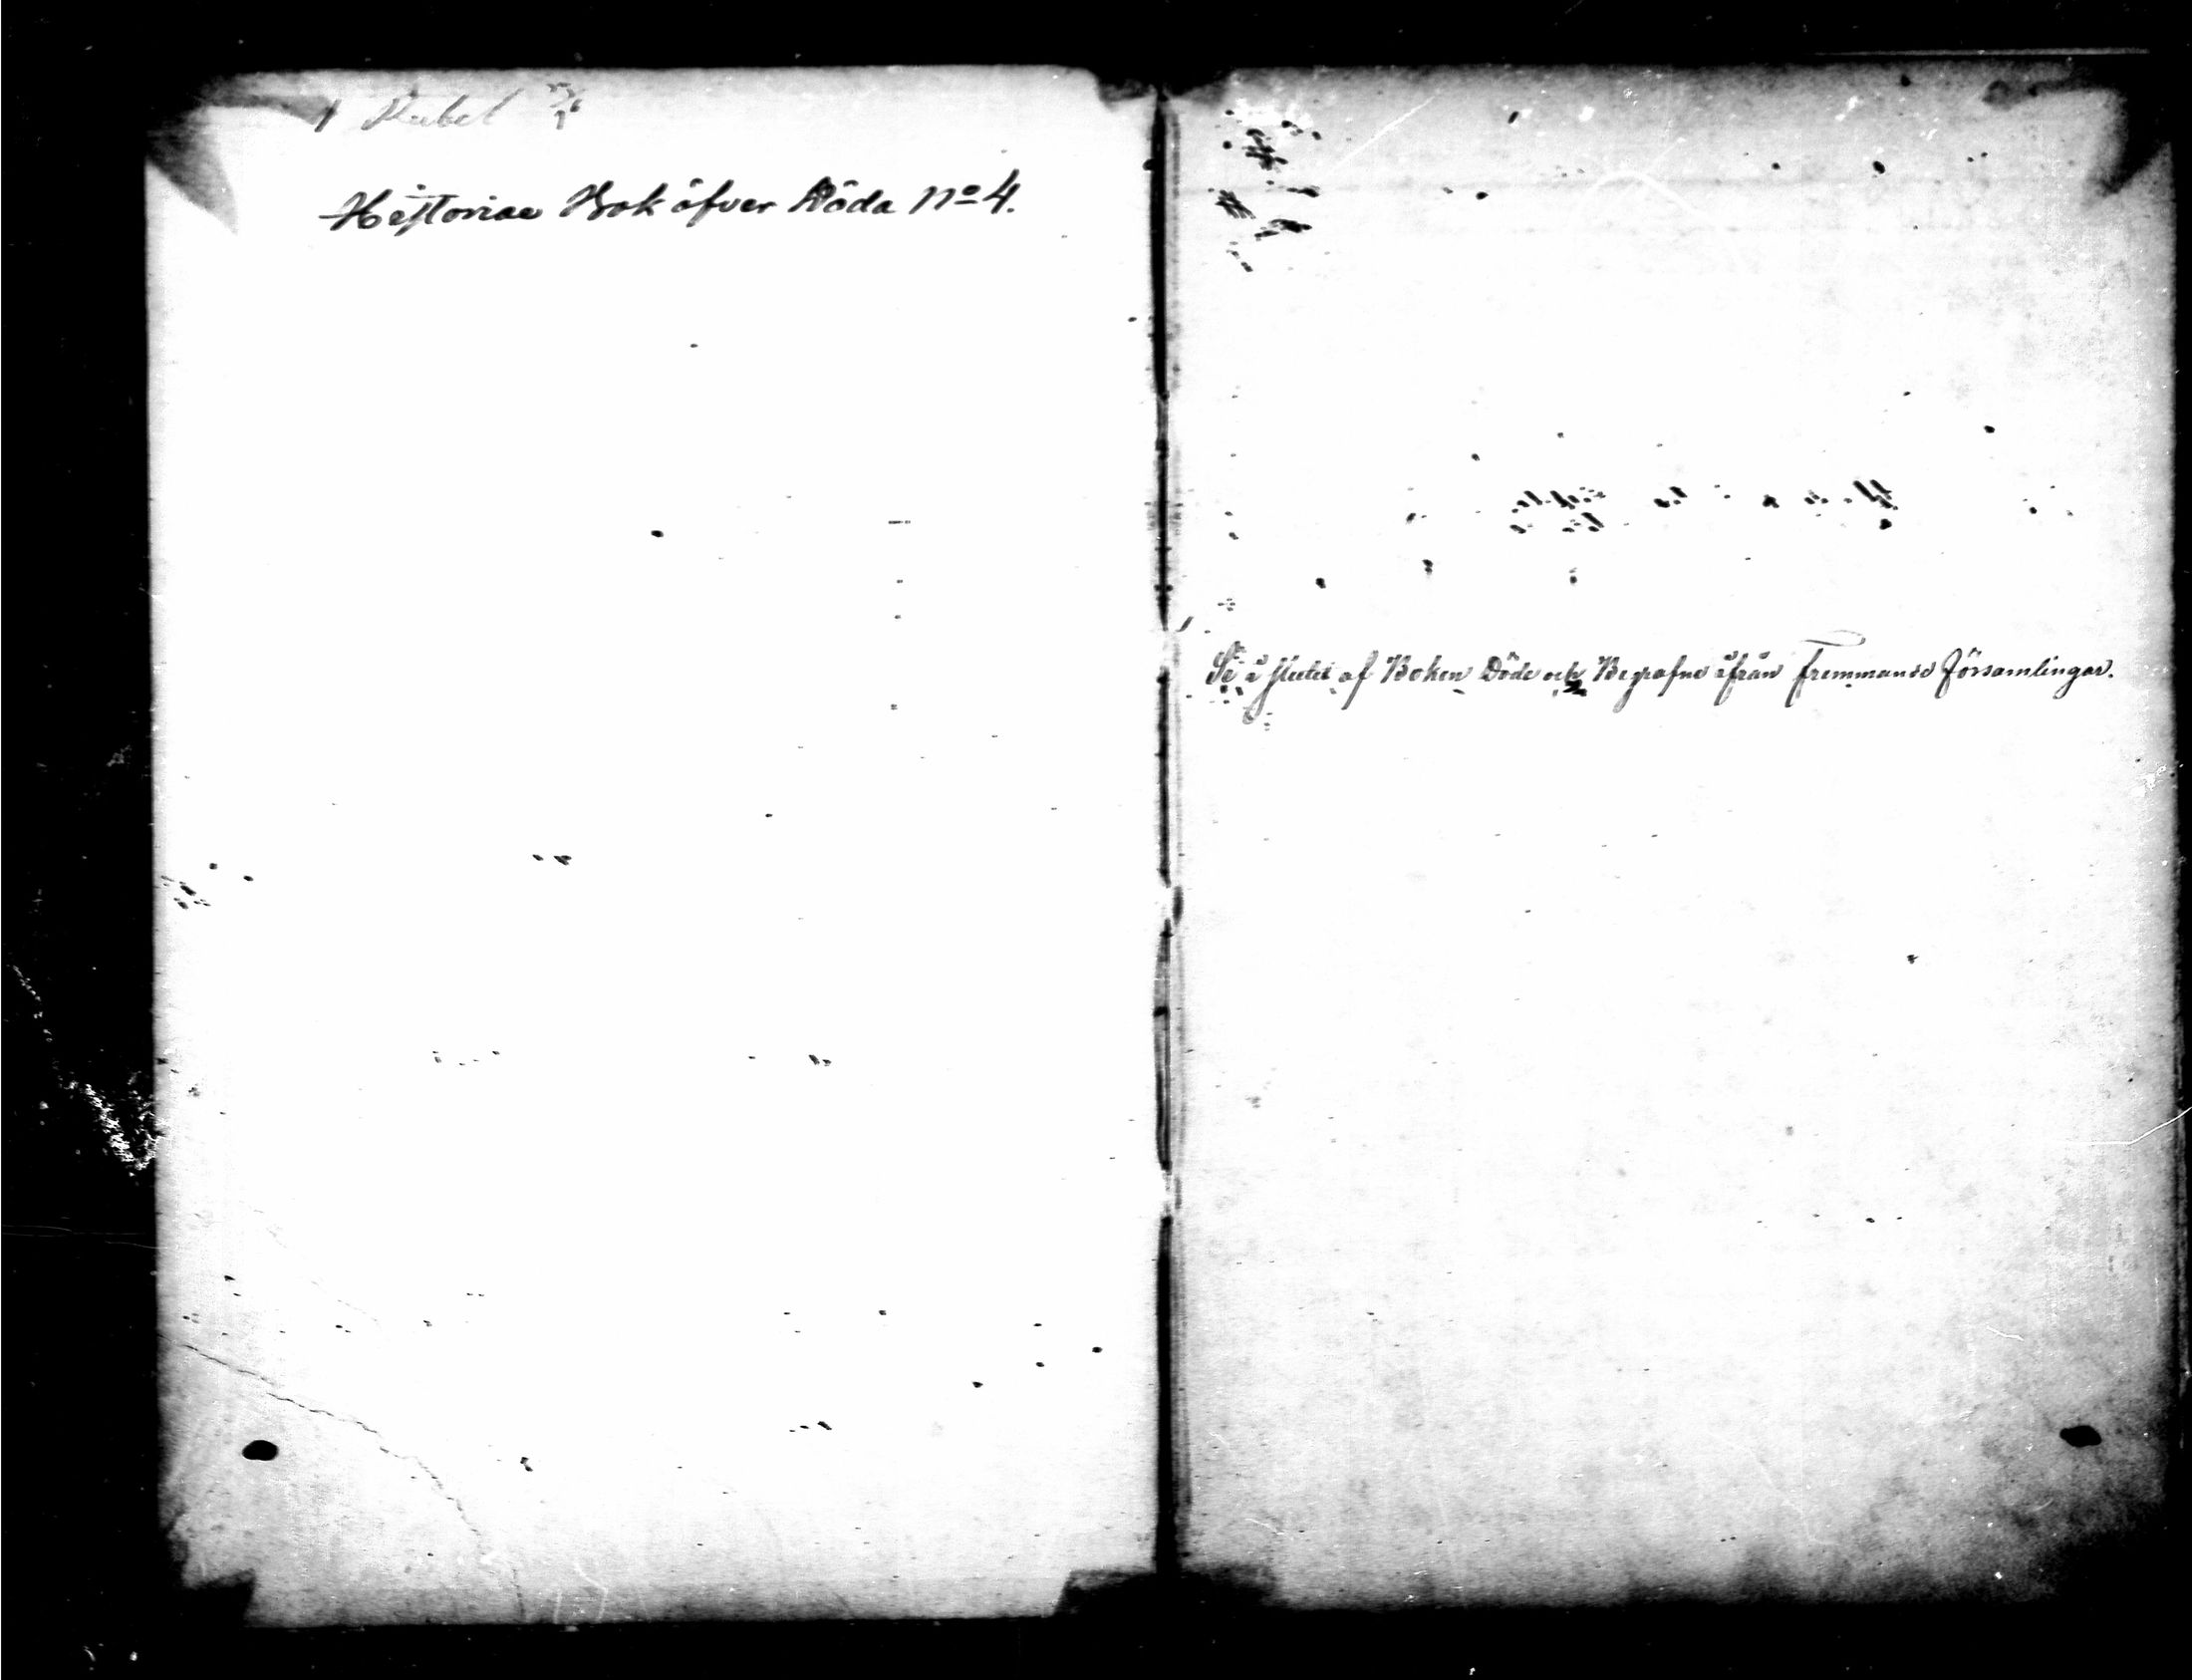 1 Rubel
Historiae Bok öfver Döda No 4.
Se i slutet af Boken Döde och Begrafne ifrån fremmande Församlingar.